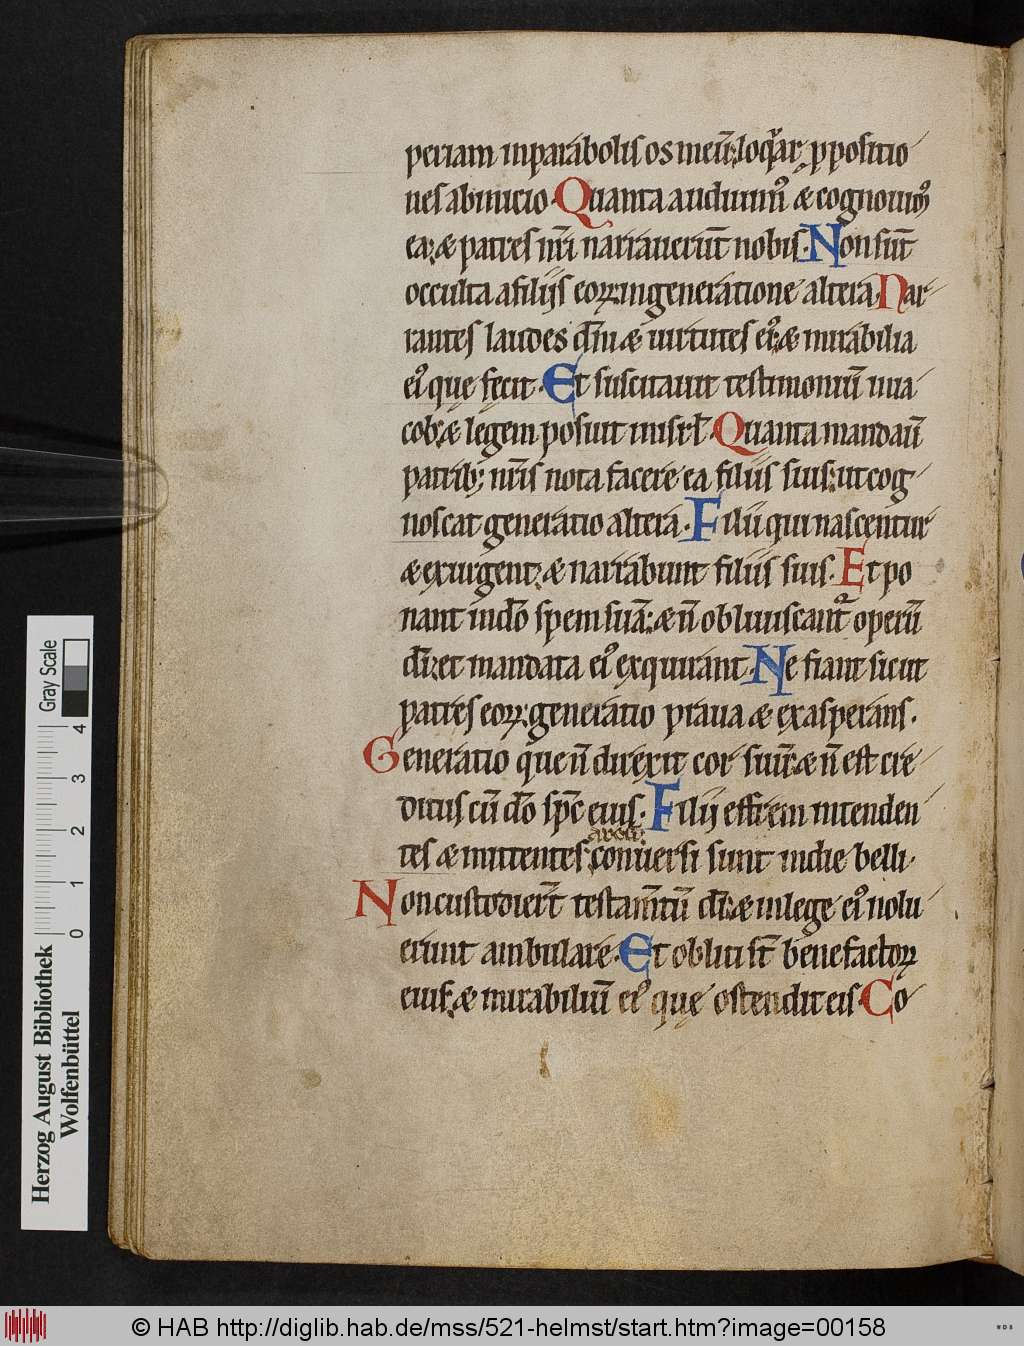 periam inparabolis os meū: loqͣr ꝓpositio
nes abinicio. Quanta audiuimꝰ & cognouimꝰ
ea: & patres nr̄i narrauerūt nobis. Non sūt
occulta afilijs eoꝝ: ingeneratione altera. Nar
rantes laudes dn̄i & uirtutes eiꝰ: & mirabilia
eiꝰ que fecit. Et suscitauit testimoniū inia
cob: & legem posuit inisrl̄. Quanta mandauit
patribꝫ nr̄is nota facere ea filiis suis: ut cog
noscat generatio altera. Filii qui nascentur
& exurgent: & narrabunt filiis suis. Et po
nant indō spem suā: & n̄ obliuiscant᷑ operū
dī: et mandata eiꝰ exquirant. Ne fiant sicut
patres eoꝝ: generatio praua & exasperans.
Generatio que n̄ direxit cor suū: & n̄ est cre
ditus cū dō spc̄ eius. Filij effrem intenden
arcū:
tes & mittentes: conuersi sunt indie belli.
Non custodierт̄ testam̄tū dī: & inlege eiꝰ nolu
erunt ambulare. Et obliti sт̄ benefactorꝝ
eius: & mirabiliū eiꝰ que ostendit eis. Co
Gray Scale
0 1 2 3 4
Herzog August Bibliothek
Wolfenbüttel
© HAB http://diglib.hab.de/mss/521-helmst/start.htm?image=00158